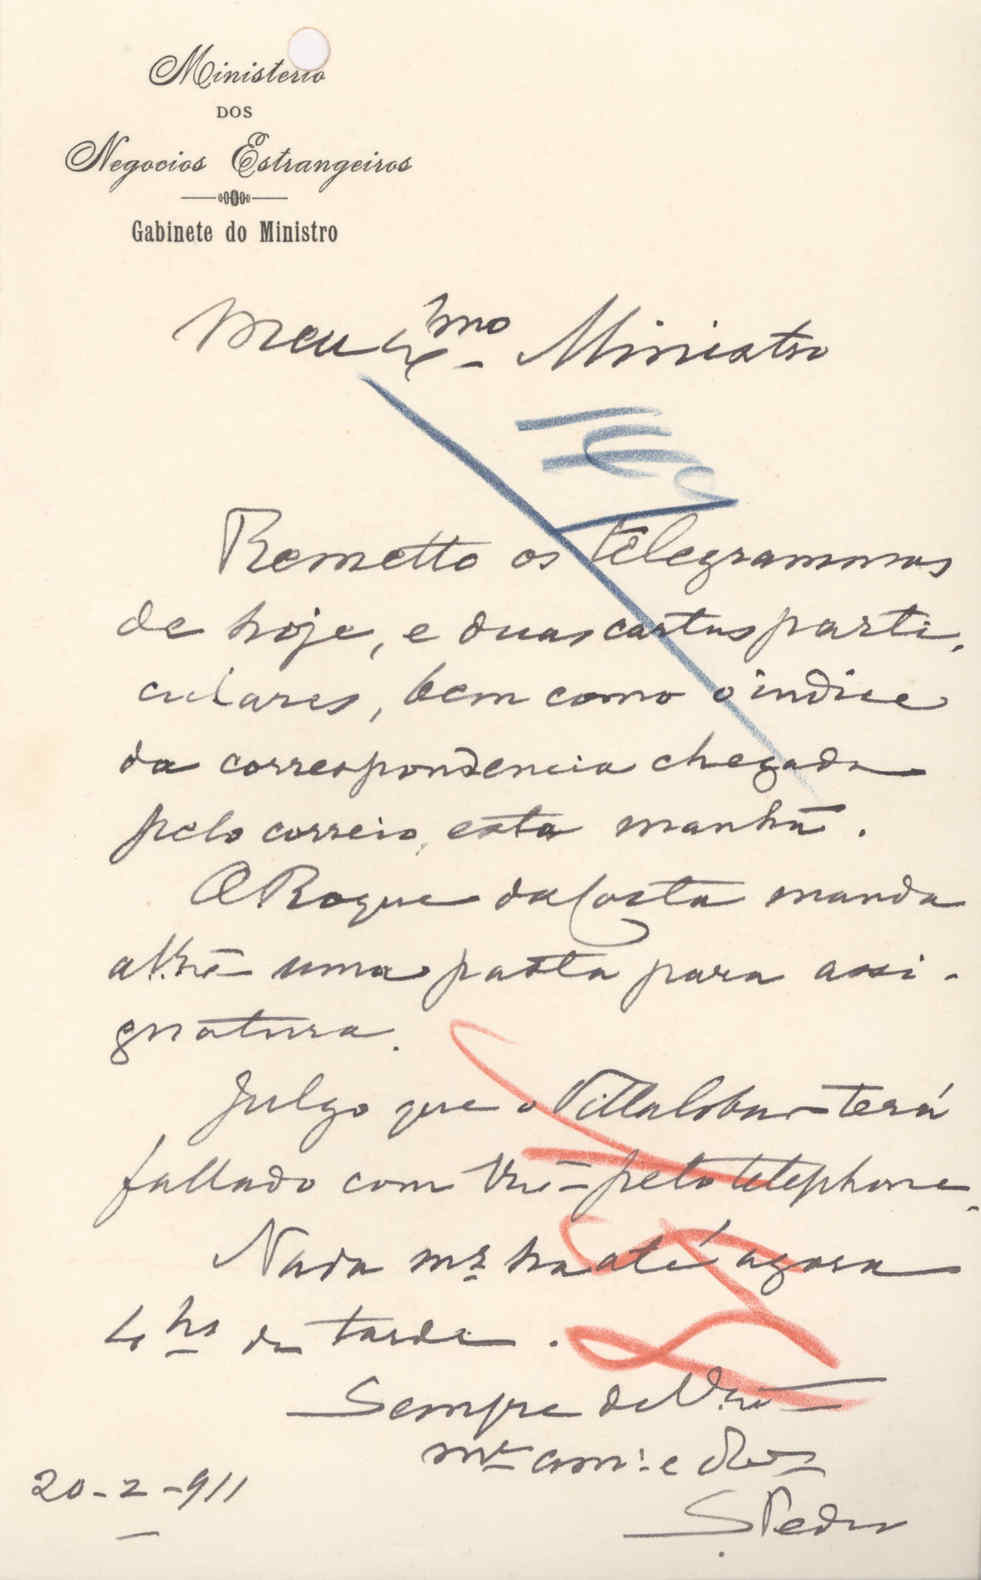 Ministerio
DOS
Negocios Estrangeiros
Gabinete do Ministro
Meu Exmo Ministro
Remetto os telegrammas
de hoje, e duas cartas parti-
culares, bem como o indice
da correspondencia chegada
pelo correio, esta manhã.
O Roque da Costa manda
a V. Exª uma pasta para assi-
gnatura.
Julgo que o Villalobar terá
fallado com V. Exª pelo telephone.
Nada ms. ha até agora
4 hs da tarde.
Sempre de V. Exª
mto am.º e
S. Pedro
20-2-911